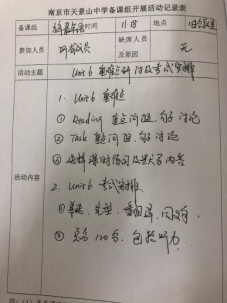 南京市天景山中学备课组开展活动记录表
备课组 时间 11.18 地点
参加人员 所有成员 缺席人员及原因 无
活动主题 Unit 6 重难点研讨及考试安排
活动内容
1. Unit 6 重难点
① Reading 重点问题、句子讨论
② Task 重点问题、句子讨论
③ 及 内容
2. Unit 6 考试安排
① 单选、完型、
② 总分120分，包括听力